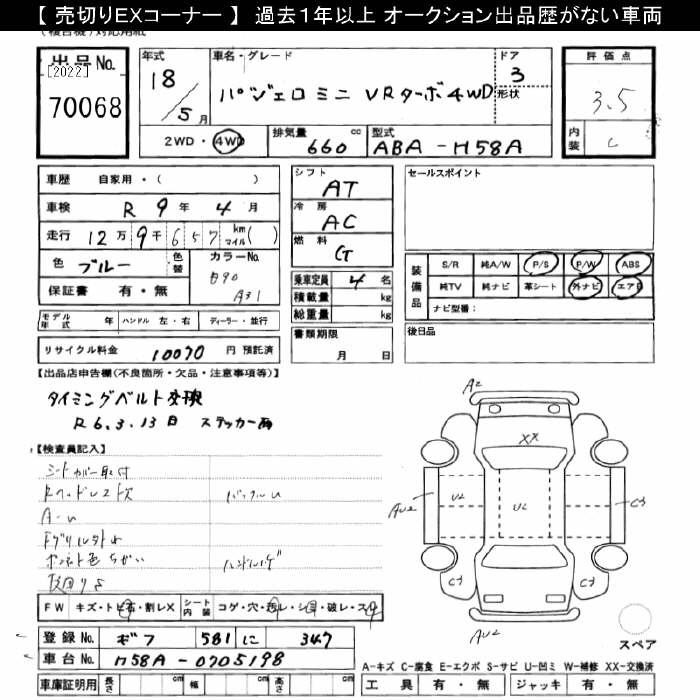 【 売切りEXコーナー 】 過去１年以上 オークション出品歴がない車両
出品No. [2022] 70068
年式 18 / 5月
車名・グレード パジェロミニ VRターボ4WD
ドア 3 形状
評価点 3.5
内装 C
2WD・4WD 排気量 660 cc 型式 ABA-H58A
車歴 自家用・( )
車検 R 9年 4月
走行 12万 9千 6 5 7 km マイル( )
色 ブルー 色替 カラーNo. B90 A31
保証書 有・無
モデル年式 年 ハンドル 左・右 ディーラー・並行
リサイクル料金 10070 円 預託済
シフト AT
冷房 AC
燃料 G
乗車定員 4 名
積載量 kg
総重量 kg
書類期限 月 日
セールスポイント
装備品 S/R 純A/W P/S P/W ABS
純TV 純ナビ 革シート 外ナビ エアB
ナビ型番:
後日品
【出品店申告欄(不良箇所・欠品・注意事項等)】
タイミングベルト交換
R6.3.13日 ステッカー有
【検査員記入】
シートカバー取付
Rヘッドレスト欠
A-U
ボンネット色ちがい
FW キズ・トビ石・割レX シート内装 コゲ・穴・汚レ・シミ・破レ・スレ
登録No. ギフ 581 に 347
車台No. H58A-0205198
車庫証明用 長さ cm 幅 cm 高さ cm
A2
XX
AU2 U2 U2 C3
C3 C3
AU2
スペア
A-キズ C-腐食 E-エクボ S-サビ U-凹ミ W-補修 XX-交換済
工具 有・無 ジャッキ 有・無